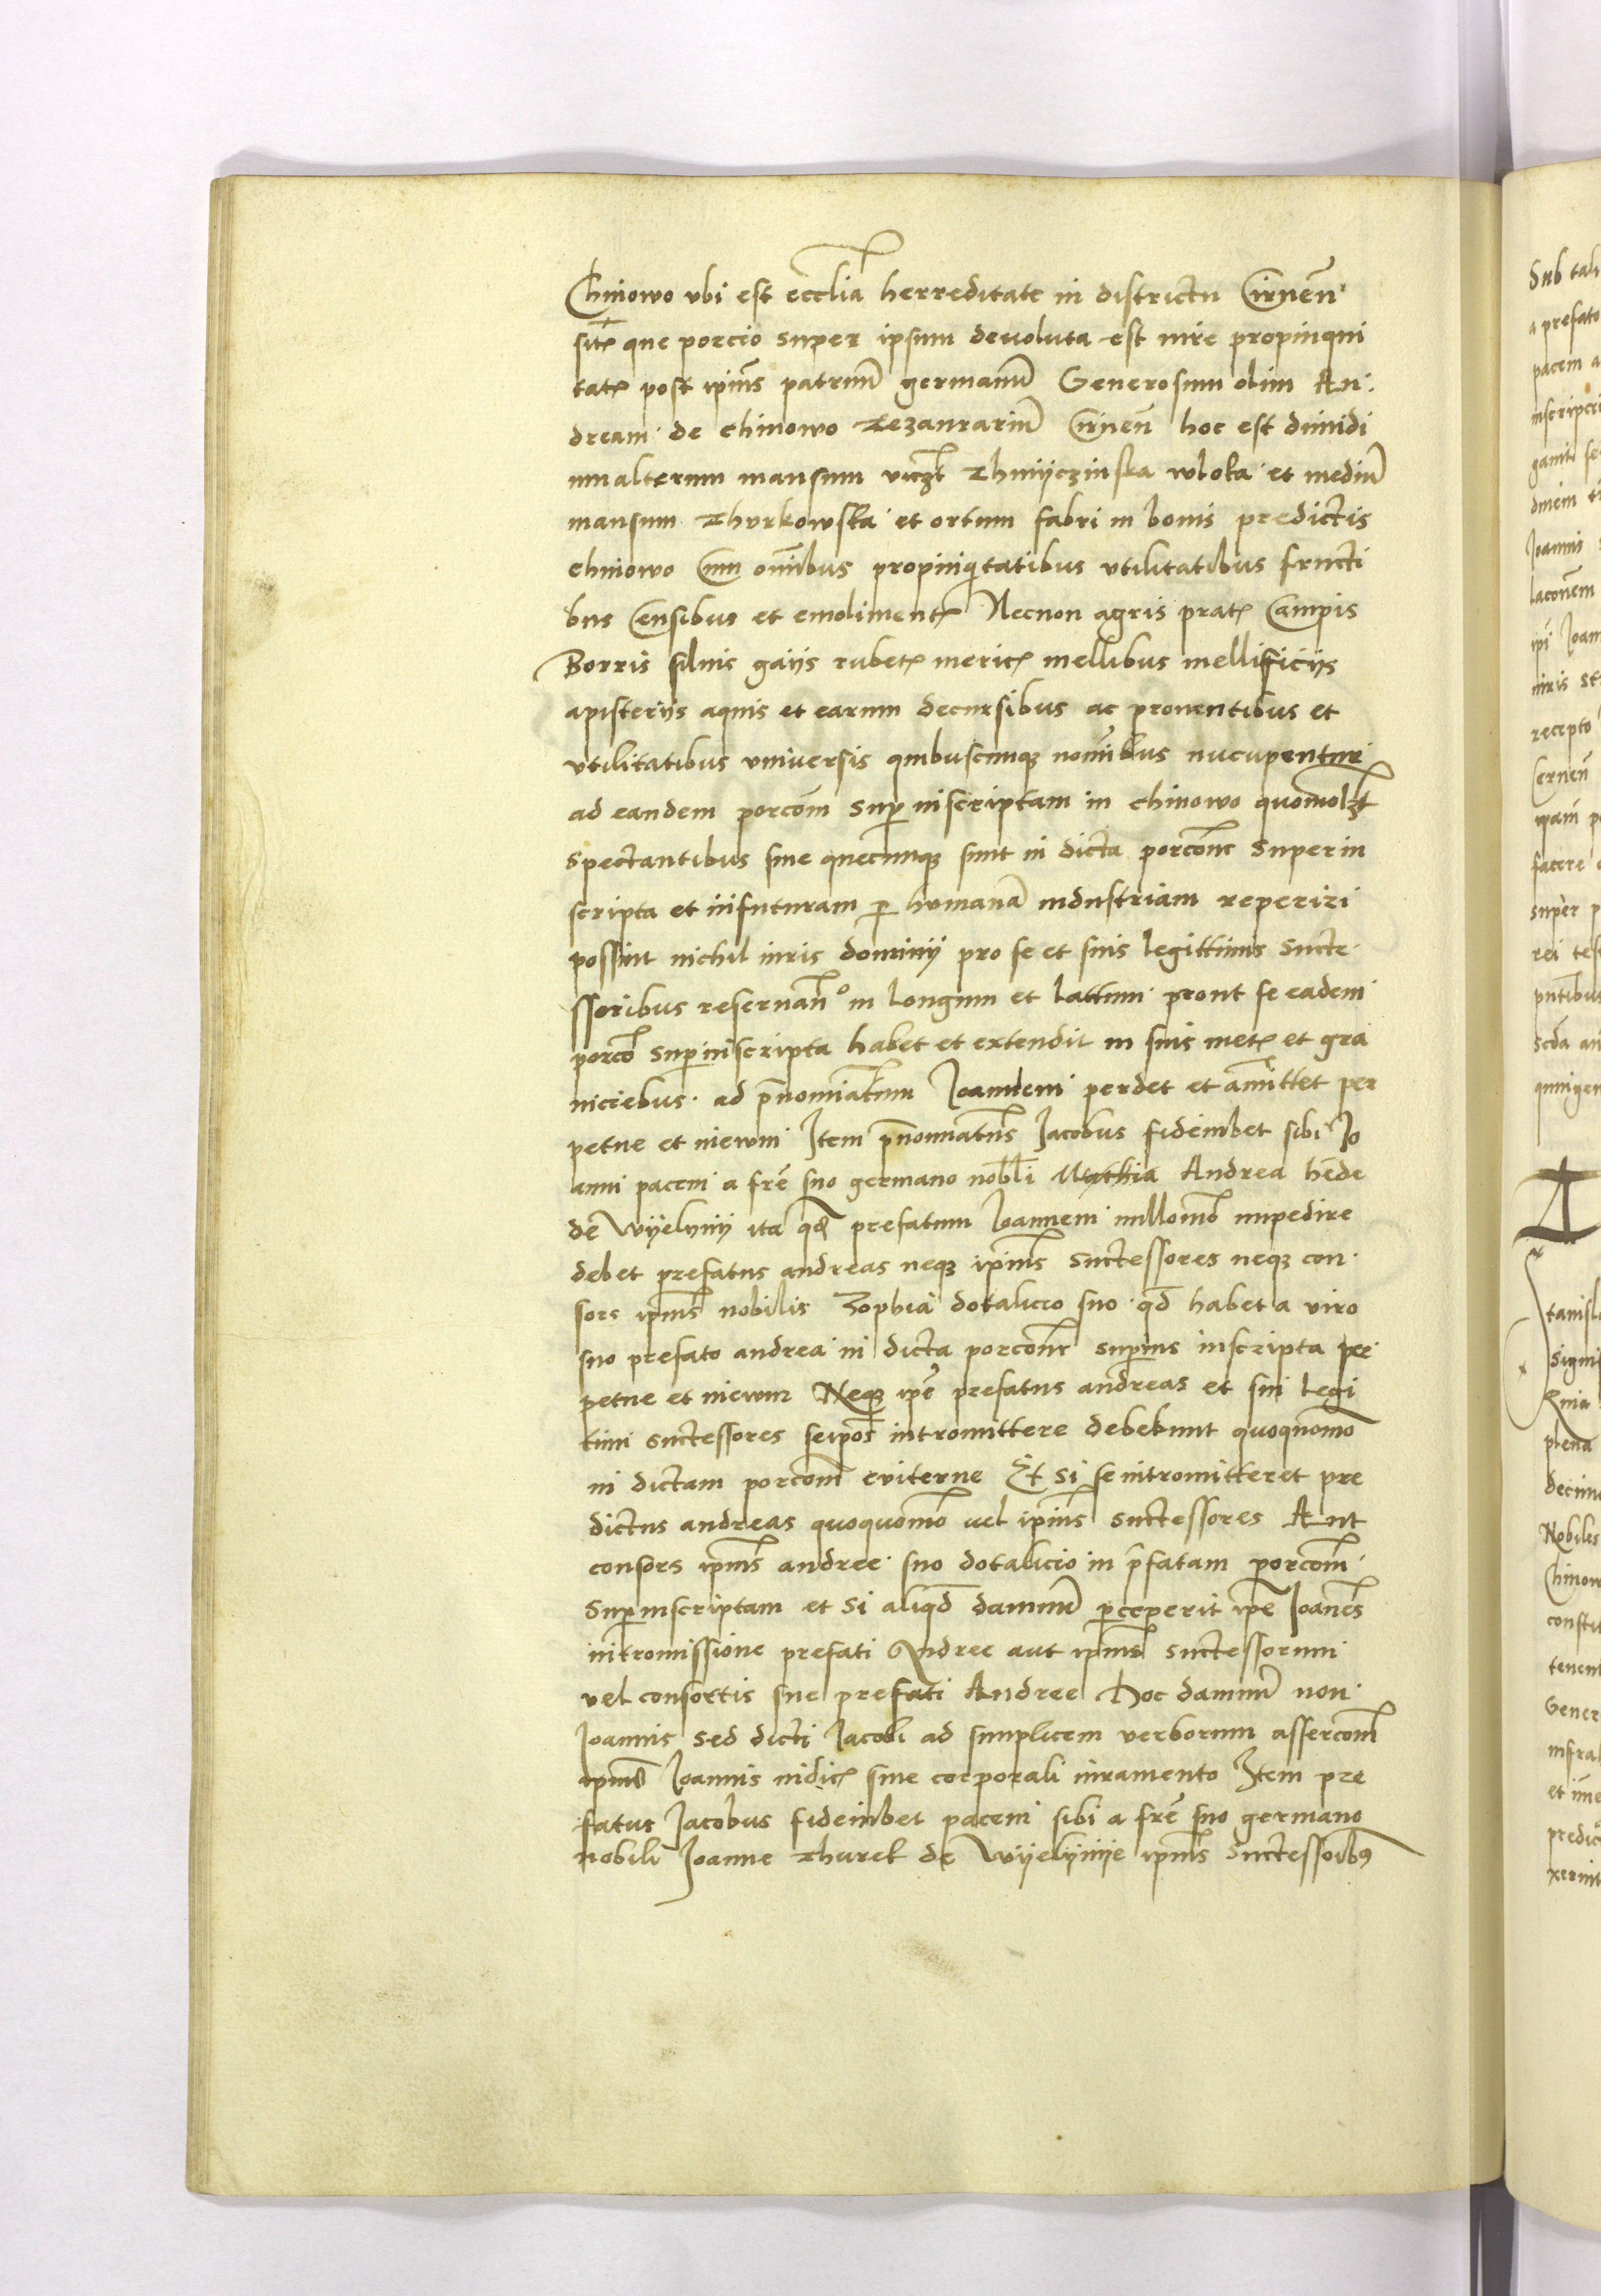 Chinowo vbi est ecclia herreditate in districtu Cirnen
sit que porcio super ipsum deuoluta est iure propinqui
tat post ipius patruu germanu Generosum olim An
dream de chinowo Tezaurariu Cirnen hoc est dimidi
um alterum mansum viczt Thmijczinska wloka et mediu
mansum Thurkowska et ortum fabri in bonis predictis
chinowo Cum omibus propinqitatibus vtilitatibus fructi
bus Censibus et emoliment Necnon agris prat Campis
Borris siluis gaijs rubet meric mellibus mellifficijs
apisterijs aquis et earum decursibus ac prouentibus et
vtilitatibus vniuersis quibuscunq nomibus nucupentur
ad eandem porcom superinscriptam in chinowo quomolzt
spectantibus siue quecunq sunt in dicta porcone superin
scripta et infuturam p humana industriam reperiri
possint nichil iuris dominij pro se et suis legittimis succe
ssoribus reseruan in longum et lattum prout se eadem
porco superinscripta habet et extendit in suis met et gra
niciebus ad pnomiatum Joannem perdet et amittet per
petue et in ewm Item pnomiatus Jacobus fideiubet sibi Jo
anni pacem a fre suo germano nobli Mathia Andrea hede
de Wijelynij ita qd prefatum Joannem nullomo impedire
debet prefatus andreas neq ipius successores neq con
sors ipius nobilis Zophia dotalicio suo qd habet a viro
suo prefato andrea in dicta porcone superius inscripta per
petue et in ewm Neq ipe prefatus andreas et sui legi
timi successores seipos intromittere debebunt quoquomo
in dictam porcom eviterne Et si se intromitteret pre
dictus andreas quoquomo vel ipius successores Aut
consors ipius andree suo dotalicio in pfatam porcom
superinscriptam et si aliqd damnu pceperit ipe Joanes
intromissione prefati Andree aut ipius successorum
vel consortis sue prefati Andree hoc damnu non
Joannis sed dicti Jacobi ad simplicem verborum assercom
ipius Joannis iudic sine corporali iuramento Item pre
fatus Jacobus fideiubet pacem sibi a fre suo germano
nobili Joanne Thurek de Wijelynije ipius successoribus